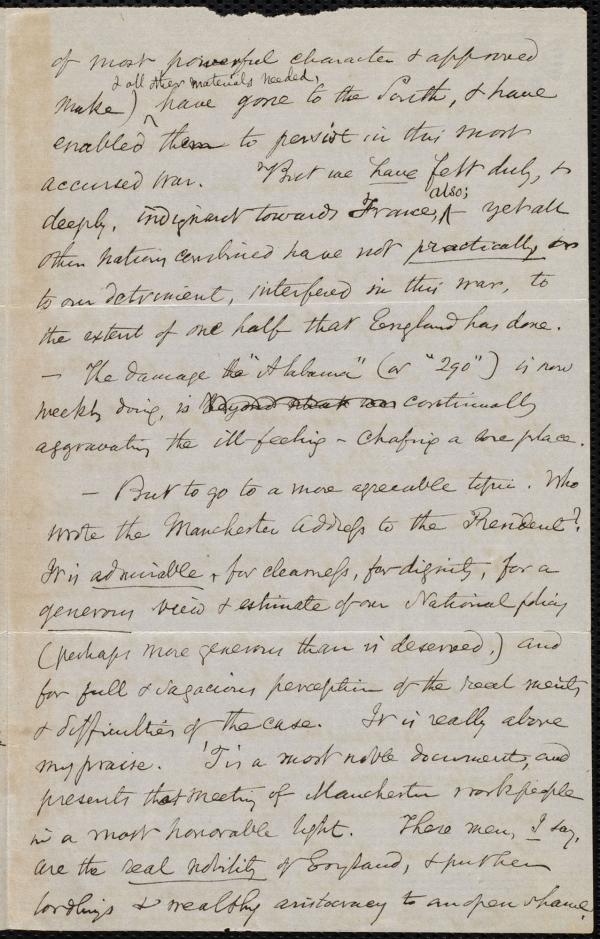 of most powerful character & approved
& all other materials needed,
make) ^ have gone to the South, & have
enabled them to persist in this most
accursed war. But we have felt duly, &
also;
deeply, indignant towards France, ^ yet all
other nations combined have not practically, &
to our detriment, interfered in this war, to
the extent of one half that England has done.
— The damage the "Alabama" (or "290") is now
weekly doing, is continually
aggravating the ill-feeling – chafing a sore place.
— But to go to a more agreeable topic. Who
wrote the Manchester Address to the President?
It is admirable, for clearness, for dignity, for a
generous view & estimate of our National policy
(perhaps more generous than is deserved,) and
for full & sagacious perception of the real merits
& difficulties of the case. It is really above
my praise. 'Tis a most noble document, and
presents that meeting of Manchester workpeople
in a most honorable light. These men, I say,
are the real nobility of England, & put her
lordlings & wealthy aristocracy to an open shame.